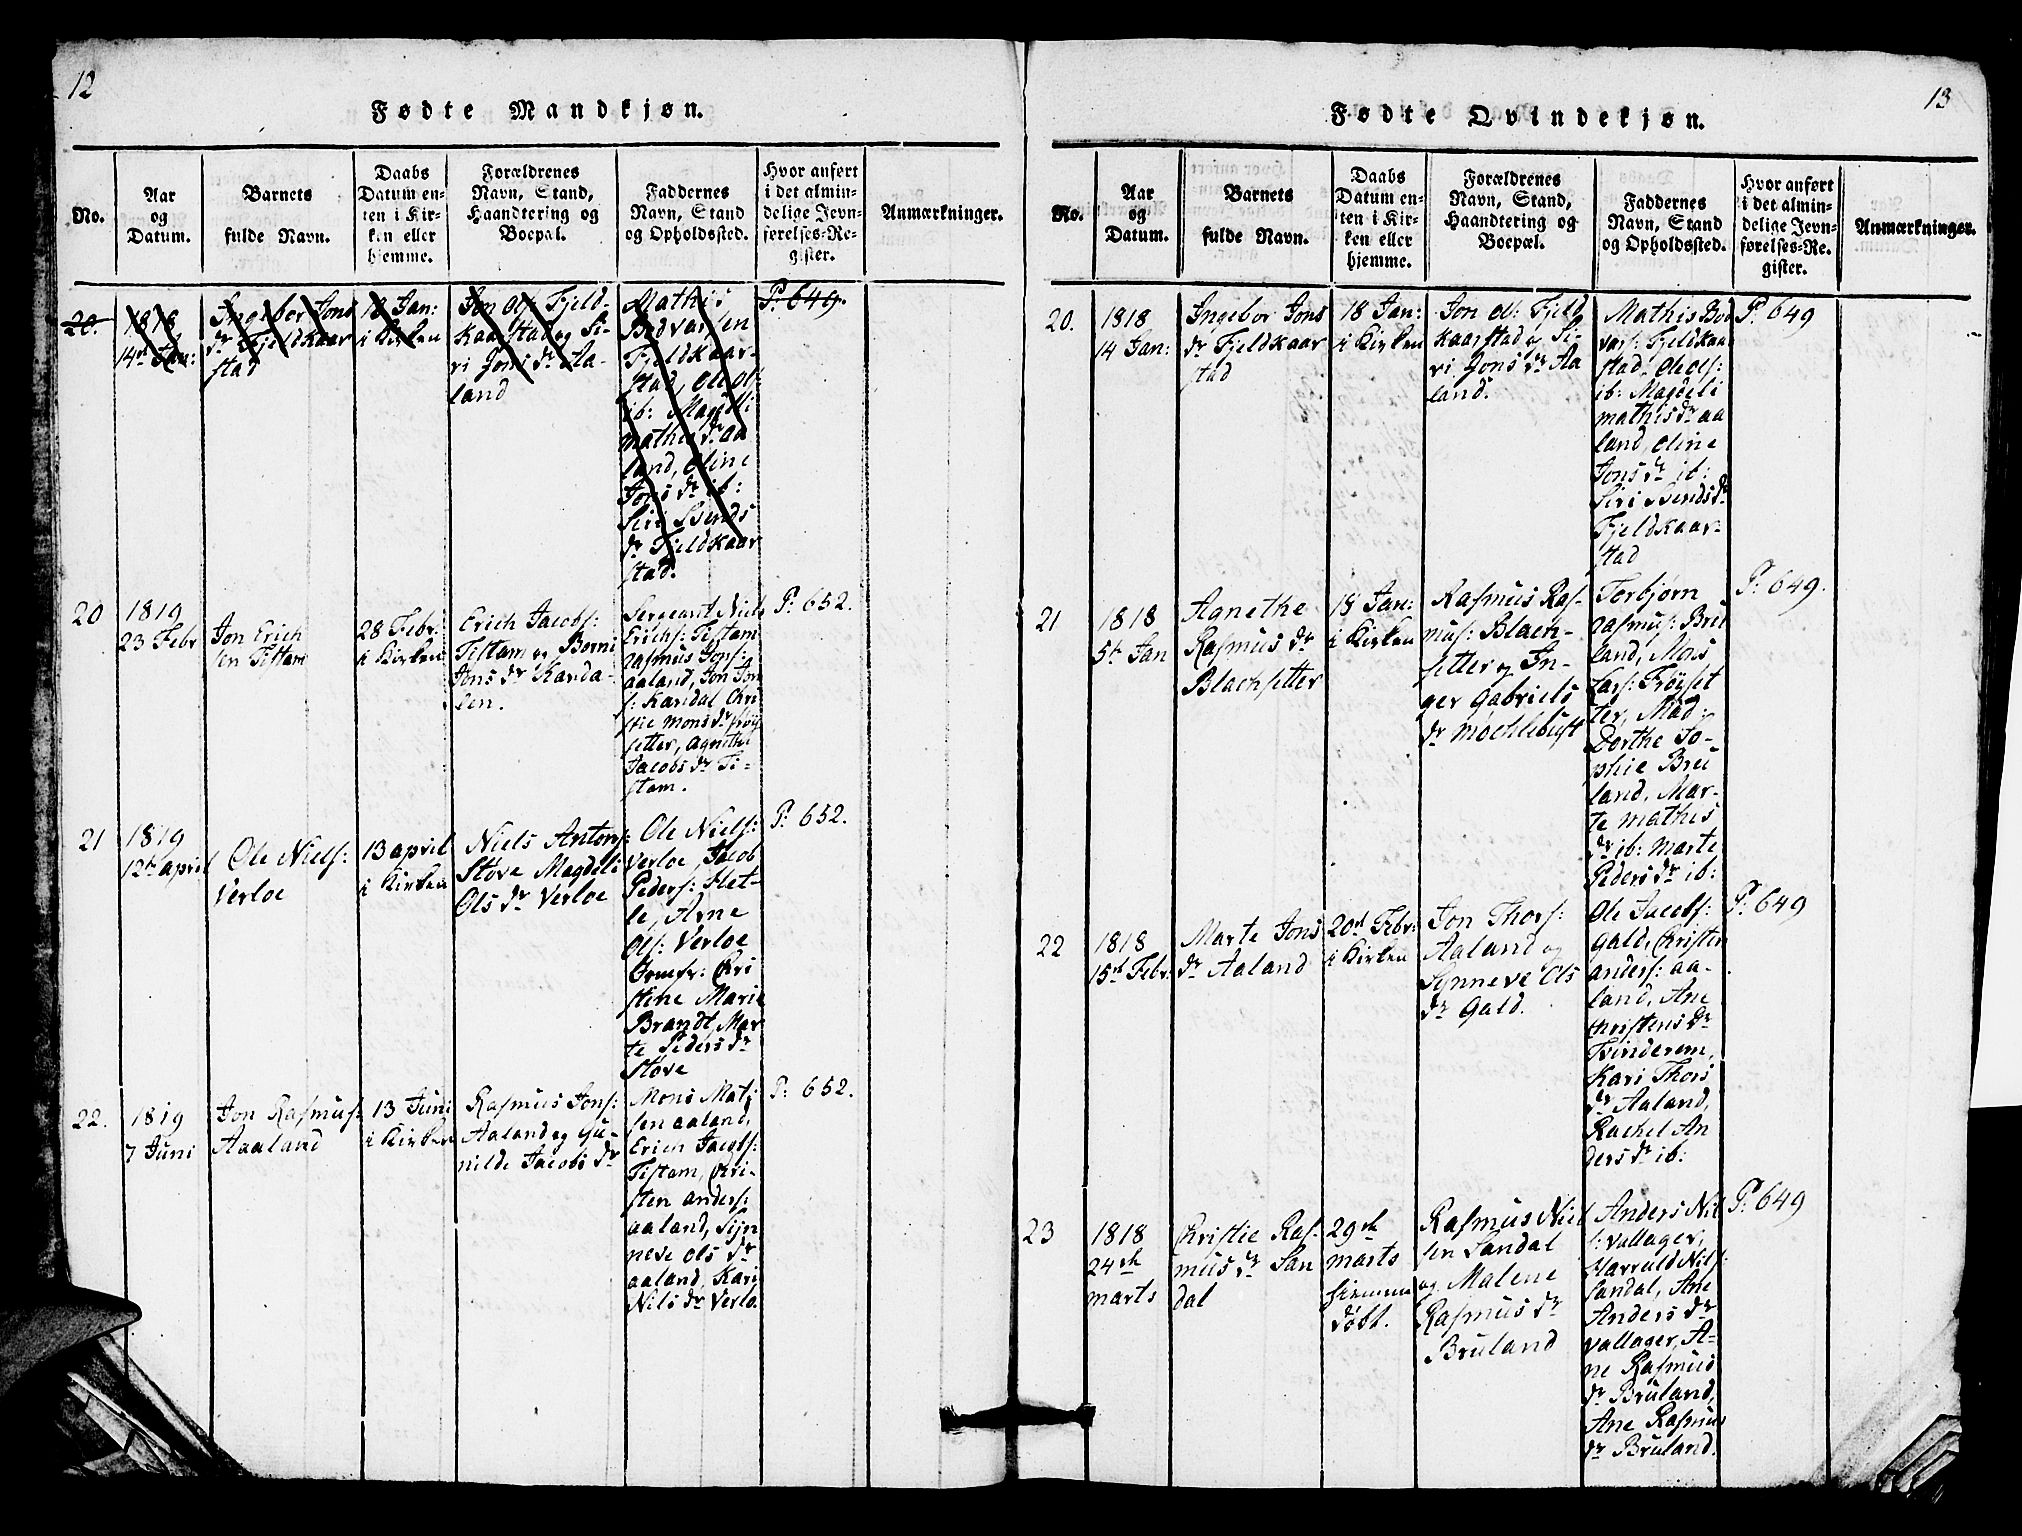 12
Fødte Mandkjøn.
No.
Aar
og
Datum.
Barnets
fulde Navn.
Daabs
Datum en-
ten i Kir-
ken eller
hjemme.
Forældrenes
Navn, Stand,
Haandtering og
Boepæl.
Faddernes
Navn, Stand
og Opholdssted.
Hvor anført
i det almin-
delige Jevn-
førelses-Re-
gister.
Anmærkninger.
20.
1818
14de Jan:
Ingebor Jons
dr Fjeldkaar
stad
18 Jan:
i Kirken
Jon Ols: Fjeld-
kaarstad og Si-
ri Jons dr Aa-
land
Mathis
Bodvarsen
Fjeldkaar-
stad, Ole Ols:
ib: Magdeli
mathis dr aa
land, Oline
Jons dr ib:
Siri Svends
dr Fjeldkaar
stad.
P: 649.
20
1819
23 Febr
Jon Erich
sen Tistam
28 Febr:
i Kirken
Erich Jacobs:
Tistam og Borni
Jons dr Karda-
len.
Sergeant Niels
Erichs: Tistam
Rasmus Jons:
aaland, Jon Jon
s: Kardal Chri
stie mons dr frøy
setter, Agnethe
Jacobs dr Ti-
stam.
P: 652.
21
1819
12te april
Ole Niels:
Verloe
13 april
i Kirken
Niels Antons:
Støve Magdeli
Ols dr Verloe
Ole Niels:
Verloe, Jacob
Peders: Het-
le, Arne
Ols: Verloe
Jomfr: Chri
stine Marie
Brandt, Mar
te Peders dr
Støve
P: 652.
22.
1819
7 Juni
Jon Rasmus:
Aaaland
13 Juni
i Kirken
Rasmus Jons:
Aaland og Gu-
nilde Jacobs dr
Mons Mat:
sen aaland,
Erich Jacobs:
Tistam, Chri-
sten anders:
aaland, Syn
neve Ols dr
aaland, Kari
Nils dr Verlo.
P: 652.
13
Fødte Qvindekjøn.
No.
Aar
og
Datum.
Barnets
fulde Navn.
Daabs
Datum en-
ten i Kir-
ken eller
hjemme.
Forældrenes
Navn, Stand,
Haandtering og
Boepæl.
Faddernes
Navn, Stand
og Opholdssted.
Hvor anført
i det almin-
delige Jevn-
førelses-Re-
gister.
Anmærkninger.
20.
1818
14 Jan:
Ingebor Jons
dr Fjeldkaar
stad
18 Jan:
i Kirken
Jon Ol: Fjeld
kaarstad og Si-
ri Jons dr Aa
land.
Mathis Bod
vars: Fjeldkaa
stad Ole Ols:
ib: Magdeli
mathis dr aa
land, Oline
Jons dr ib:
Siri Svends dr
Fjeldkaar-
stad
P: 649
21
1818
5te Jan
Agnethe
Rasmus dr
Blachsetter
18 Jan:
i Kirken
Rasmus Ras-
mus: Blaen-
setter og In-
ger Gabriels
dr Møchlebust
Torbjørn
Rasmus: Brei
land, Mons
Lars: Frøyset
ter, Mad:
Dorthe So-
phie Brei
land, Mar-
te mathis
dr ib: marte
Peders dr ib:
P: 649.
22
1818
15de Febr:
Marte Jons
dr Aaland
20de Febr:
i Kirken
Jon Thors:
Aaland og
Synneve Ols
dr Gald.
Ole Jacobs:
Gald, Christen
anders: aa-
land, Ane
christens dr
Tvinderem,
Kari Thors
dr Aaland,
Rachel An
ders dr ib:
P: 649
23
1818
24de
marts
Christie Ras-
mus dr San
dal
29de
marts
hiemme
døbt.
Rasmus Niel
sen Sandal
og Malene
Rasmus dr
Bruland
Anders Nil
s: vallager,
Harruld Nils:
Sandal, Ane
Anders dr
vallager, A-
ne Rasmus
dr Bruland,
Ane Rasmus
dr Bruland.
P: 649